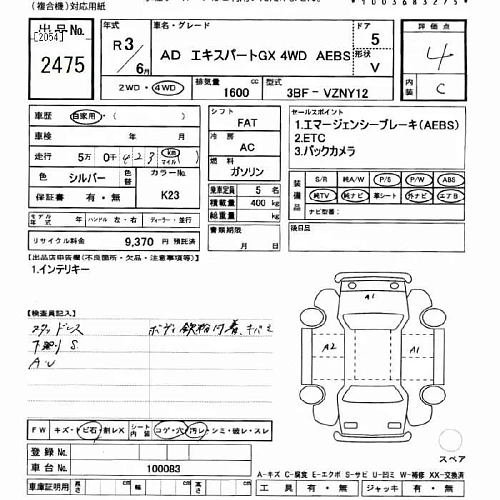 (複合機)対応用紙
*1003683275*
出品No. 年式 車名・グレード ドア 評価点
[2054]
2475 R3/6月 AD エキスパートGX 4WD AEBS 5 4
形状
V
2WD・4WD 排気量 1600 cc 型式 3BF-VZNY12 内装 C
車歴 自家用・( ) シフト FAT セールスポイント
1.エマージェンシーブレーキ(AEBS)
2.ETC
3.バックカメラ
車検 年 月 冷房 AC
走行 5万 0千 423 km マイル ( ) 燃料 ガソリン
色 シルバー 色替 カラーNo. K23
保証書 有・無
乗車定員 5 名
積載量 400 kg
総重量 kg
装備品 S/R 純A/W P/S P/W ABS
純TV 純ナビ 革シート 外ナビ エアB
ナビ型番:
モデル年式 年 ハンドル 左・右 ディーラー・並行
書類期限 年 月 日
後日品
リサイクル料金 9,370 円 預託済
【出品店申告欄(不良箇所・欠品・注意事項等)】
1.インテリキー
【検査員記入】
下廻りS
A1
A2
A1
FW キズ・トビ石・割レX シート内装 コゲ・穴・汚レ・シミ・破レ・スレ
登録No.
車台No. 100083
スペア
A-キズ C-腐食 E-エクボ S-サビ U-凹ミ W-補修 XX-交換済
車庫証明用 長さ cm 幅 cm 高さ cm 工具 有・無 ジャッキ 有・無